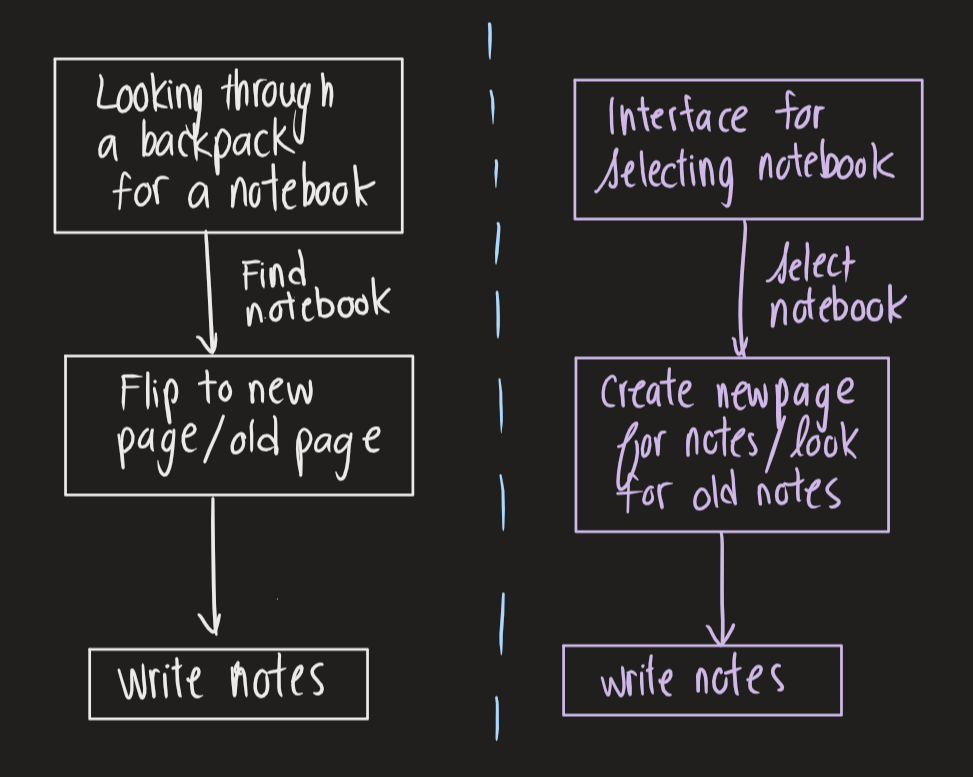 Looking through
a backpack
for a notebook
Find
notebook
Flip to new
page/old page
write notes
Interface for
selecting notebook
select
notebook
create new page
for notes/look
for old notes
write notes